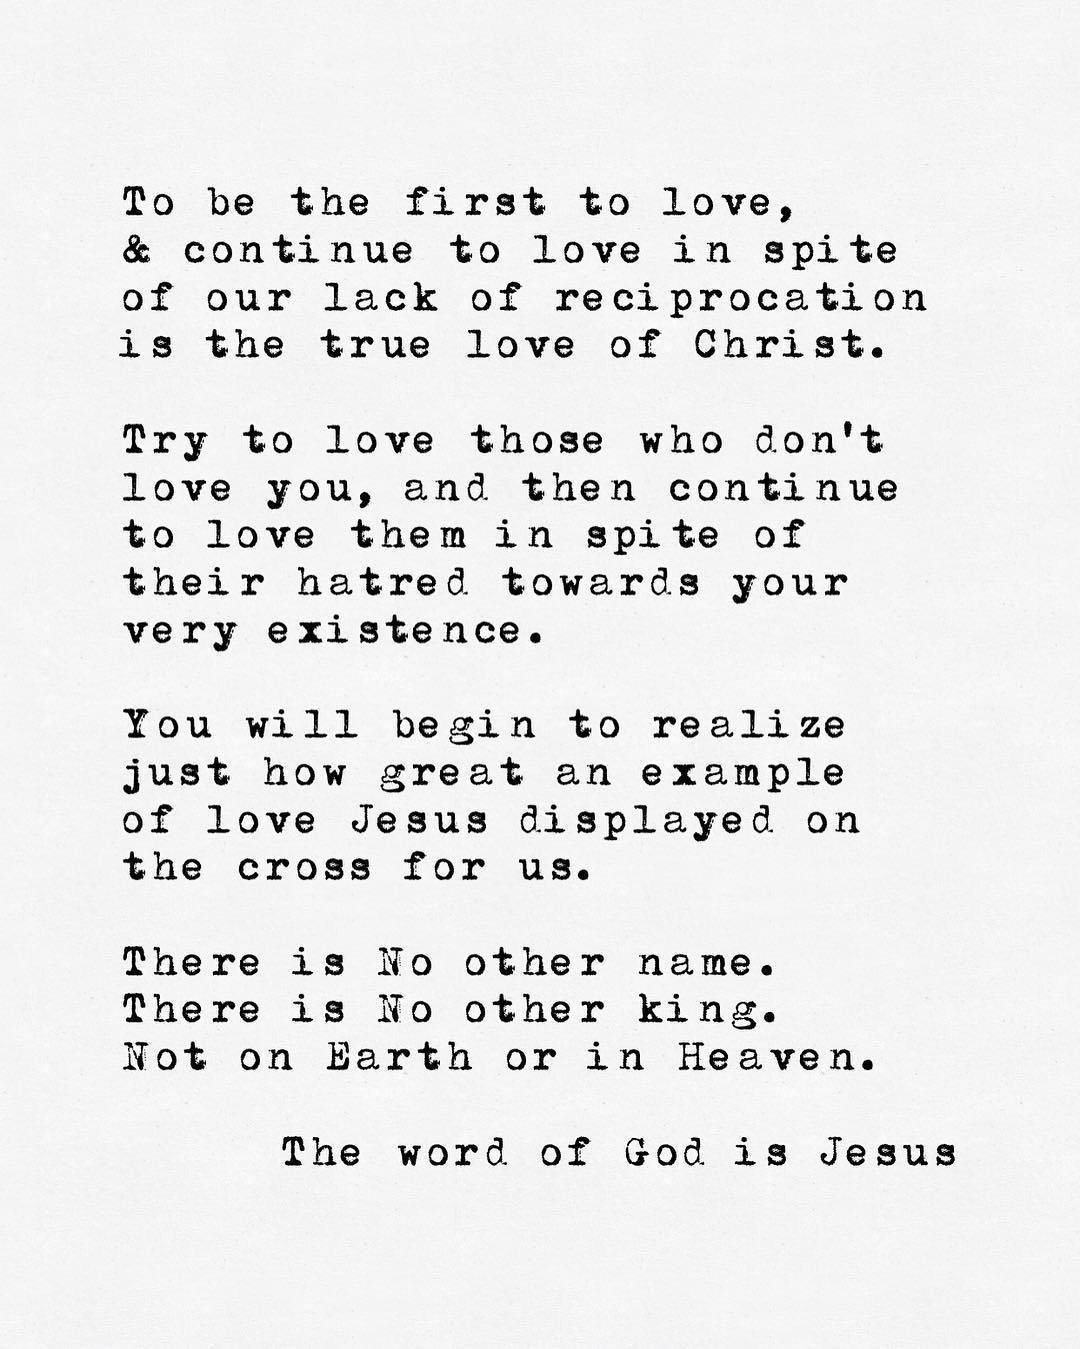 To be the first to love,
& continue to love in spite
of our lack of reciprocation
is the true love of Christ.
Try to love those who don't
love you, and then continue
to love them in spite of
their hatred towards your
very existence.
You will begin to realize
just how great an example
of love Jesus displayed on
the cross for us.
There is No other name.
There is No other king.
Not on Earth or in Heaven.
The word of God is Jesus